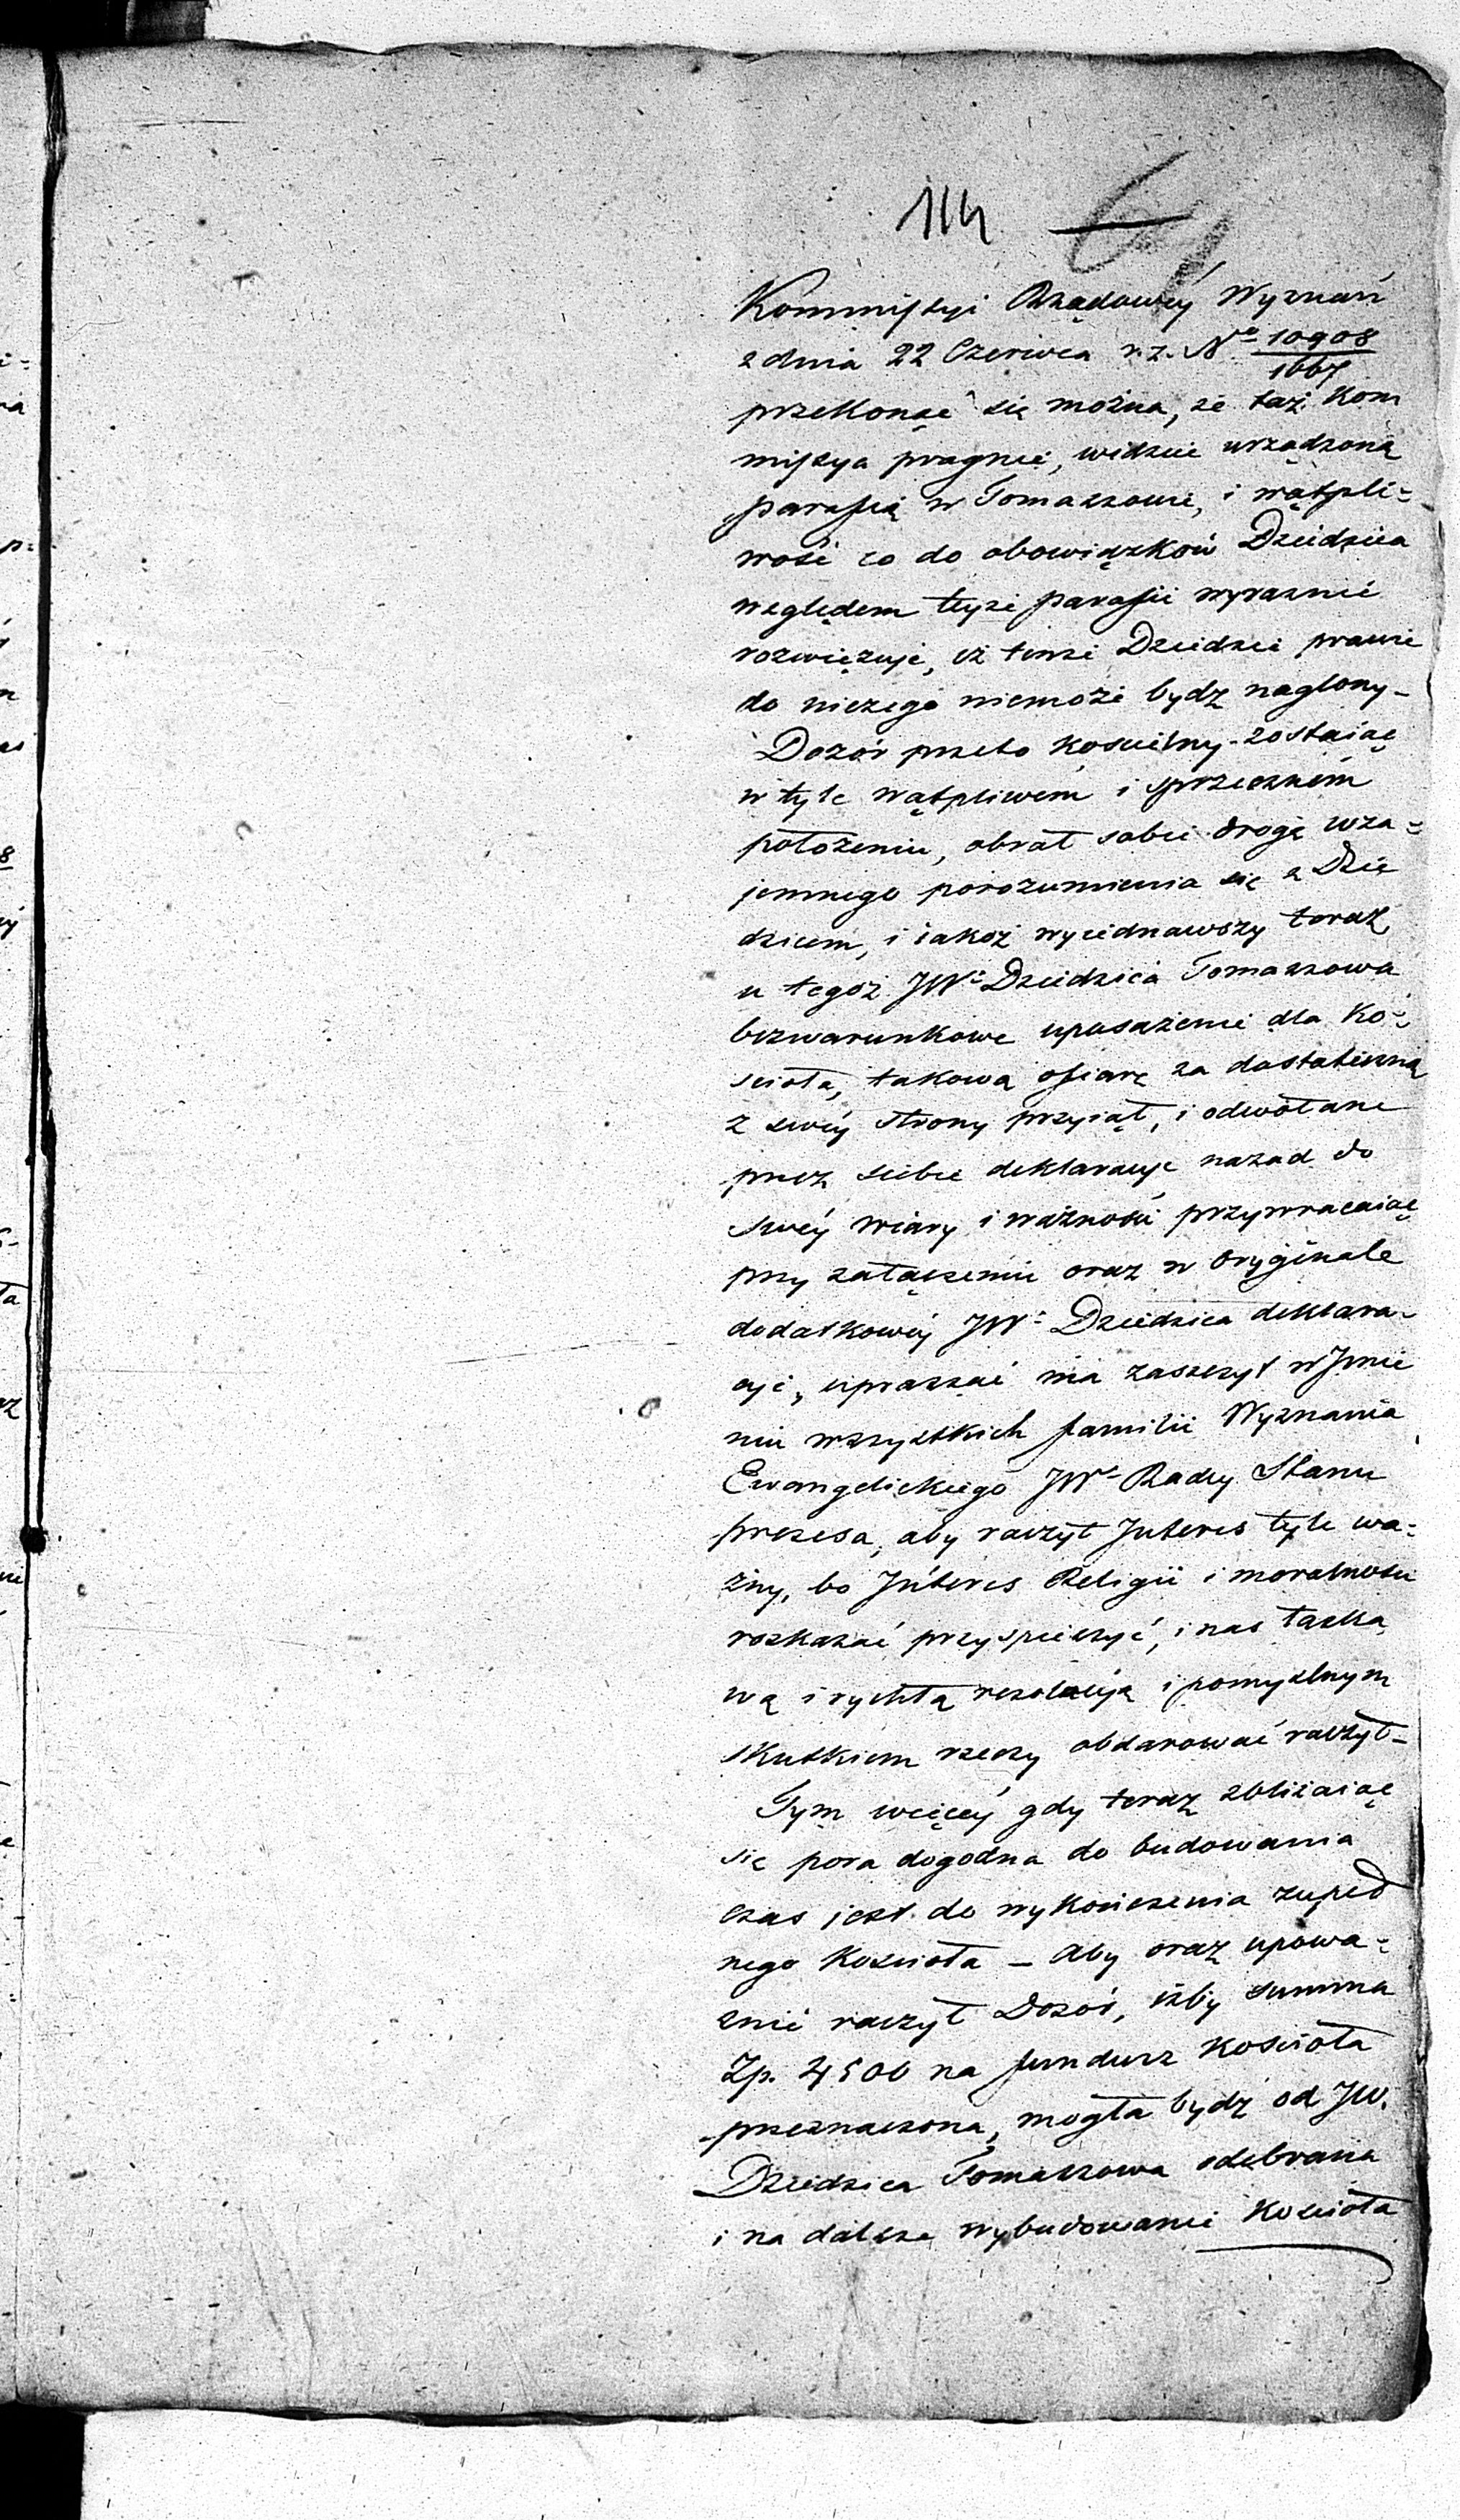 114 64
Kommissyi Rządowéy Wyznań
z dnia 22 Czerwca r.z. No 10908/1667
przekonać się można, że taż Kom
missya pragnie, widzieć urządzoną
parafią w Tomaszowie, i wątpli=
wość co do obowiązków Dziedzica
względem teyże parafii wyraznie
rozwięzuje, iż tenże Dziedzic prawie
do niczego niemoże bydz naglony_
Dozór przeto kościelny zostaiąc
w tyle wątpliwém i sprzeczném
położeniu, obrał sobie drogę wza=
jemnego porozumienia się z Dzie
dzicem, i iakoż wyiednawszy teraz
u tegoż JWo Dziedzica Tomaszowa
bezwarunkowe uposażenie dla Ko=
scioła, takową ofiarę za dostateczną
z swéy strony przyiął, i odwołane
przez siebie deklaracye nazad do
swéy wiary i ważności przywracaiąc
przy załączeniu oraz w oryginale
dodatkowéy JWo Dziedzica deklara-
cyi, upraszać ma zaszczyt w Jmie
niu wszystkich familii Wyznania
Ewangelickiego JWo Radcy Stanu
prezesa, aby raczył Interes tyle wa=
żny, bo Interes Religii i moralności
rozkazać przyspieszyć, i nas łaska
wą i rychłą rezolucyą i pomyslnym
skutkiem rzeczy obdarować raczył_
Tym więcéy gdy teraz zbliżaiąc
się pora dogodna do budowania
czas jest do wykończenia zupeł
nego Kościoła _ Aby oraz upowa=
żnić raczył Dozór, iżby summa
Zp. 4500 na fundusz kościoła
przeznaczona, mogła bydź od JW.
Dziedzica Tomaszowa odebrana
i na dalsze wybudowanie Kościoła